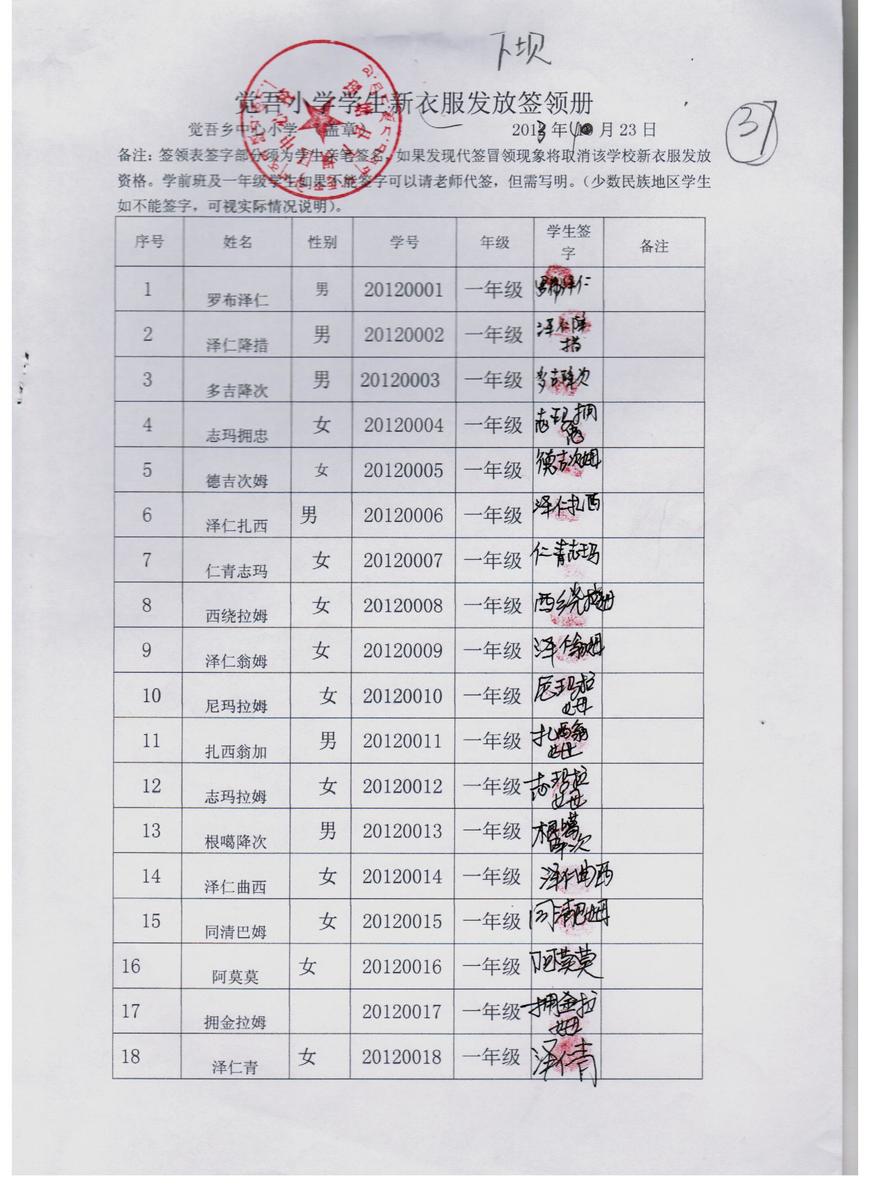 下坝
觉吾小学学生新衣服发放签领册
37
觉吾乡中心小学 盖章 2013年10月23日
备注：签领表签字部分须为学生亲笔签名，如果发现代签冒领现象将取消该学校新衣服发放
资格。学前班及一年级学生如果不能签字可以请老师代签，但需写明。（少数民族地区学生
如不能签字，可视实际情况说明）。
序号 姓名 性别 学号 年级 学生签字 备注
1 罗布泽仁 男 20120001 一年级 罗布泽仁
2 泽仁降措 男 20120002 一年级 泽仁降措
3 多吉降次 男 20120003 一年级 多吉降次
4 志玛拥忠 女 20120004 一年级 志玛拥忠
5 德吉次姆 女 20120005 一年级 德吉次姆
6 泽仁扎西 男 20120006 一年级 泽仁扎西
7 仁青志玛 女 20120007 一年级 仁青志玛
8 西绕拉姆 女 20120008 一年级 西绕拉姆
9 泽仁翁姆 女 20120009 一年级 泽仁翁姆
10 尼玛拉姆 女 20120010 一年级 尼玛拉姆
11 扎西翁加 男 20120011 一年级 扎西翁
12 志玛拉姆 女 20120012 一年级 志玛拉姆
13 根噶降次 男 20120013 一年级 根噶降次
14 泽仁曲西 女 20120014 一年级 泽仁曲西
15 同清巴姆 女 20120015 一年级 同清巴姆
16 阿莫莫 女 20120016 一年级 阿莫莫
17 拥金拉姆 20120017 一年级 拥金拉姆
18 泽仁青 女 20120018 一年级 泽仁青